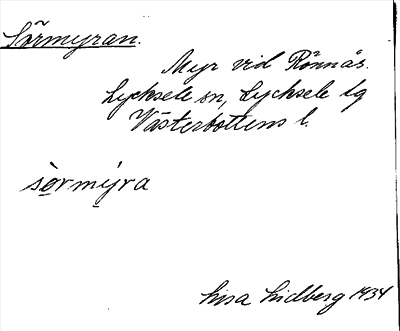 Sörmyran.
Myr vid Rönnås.
Lycksele sn, Lycksele lg
Västerbottens l.
sørmýra
Lisa Lidberg 1934